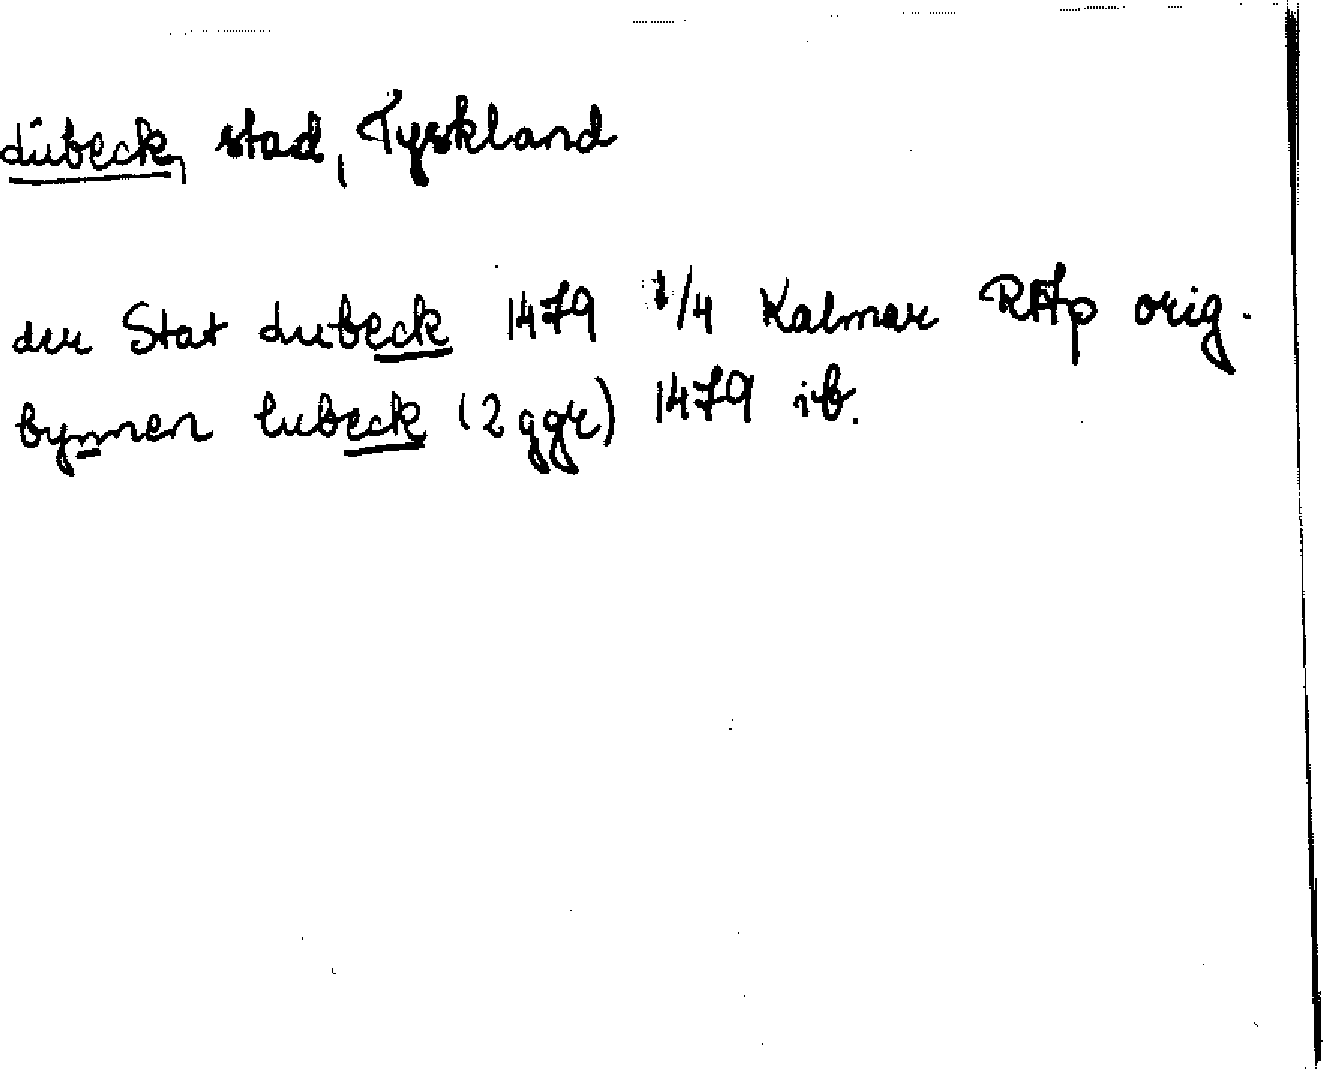 Lübeck, stad, Tyskland
der Stat Lubeck 1479 1/4 Kalmar RAp orig.
bynnen lubeck (2 ggr) 1479 ib.